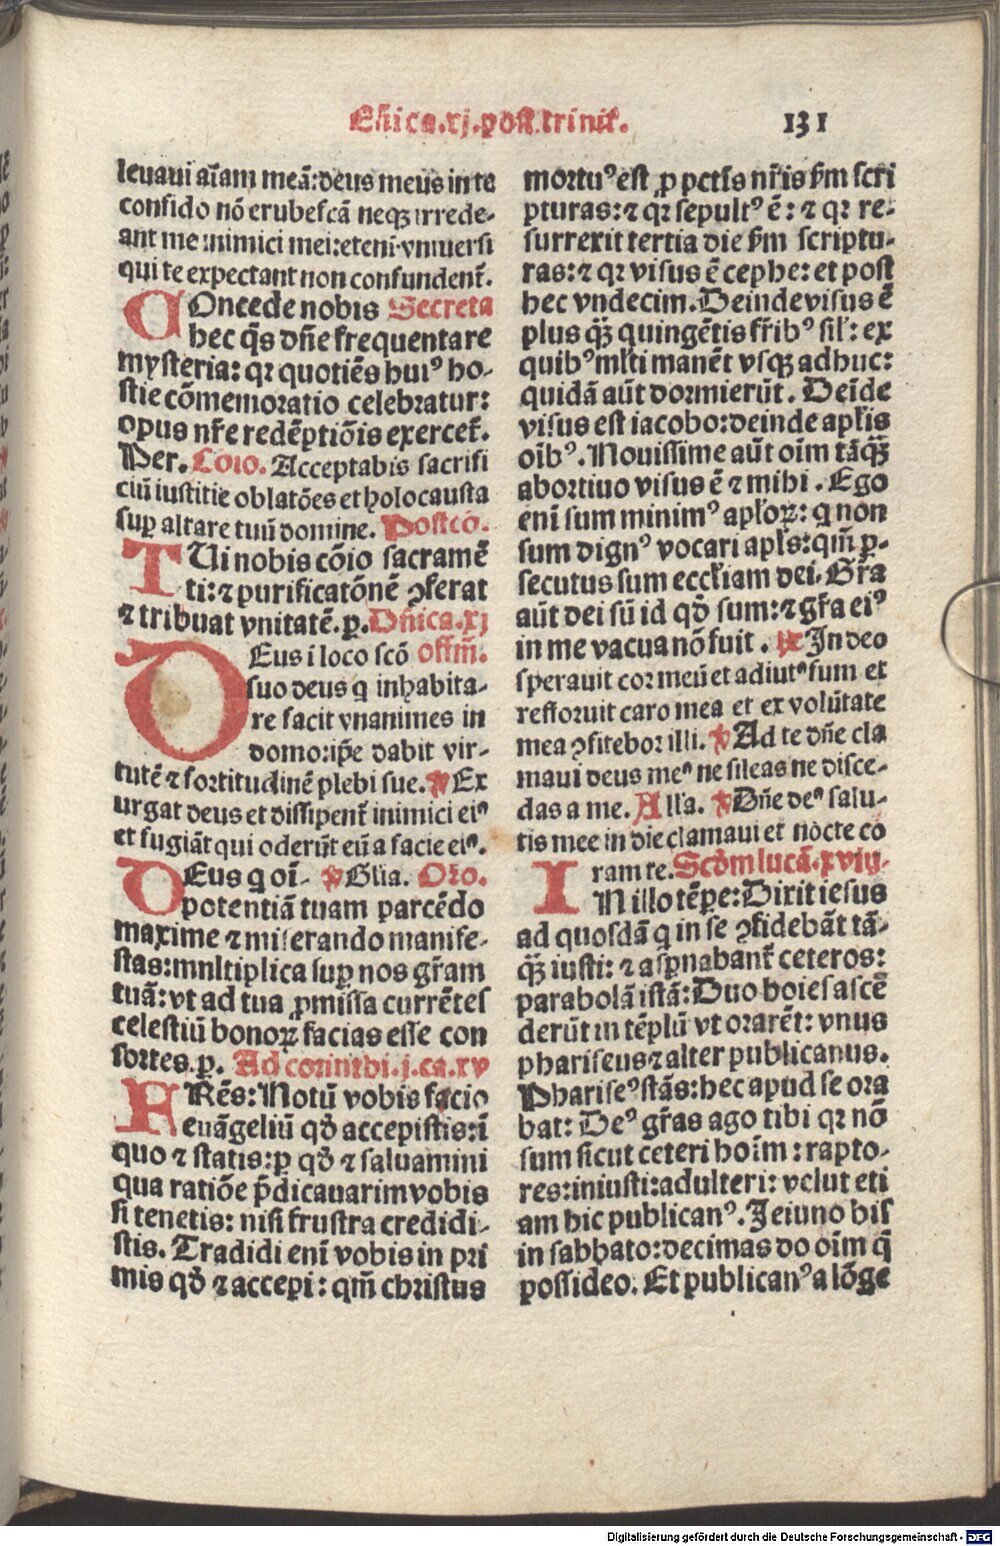 Dñica.xj.post.trinit.
131
leuaui aĩam meã:deus meus in te
confido nõ erubescã neqꝫ irrede-
ant me inimici mei:eteni vniuersi
qui te expectant non confundent̃.
COncede nobis Secreta
hec q̃s dñe frequentare
mysteria: qꝛ quotiẽs huiꝰ ho-
stie cõmemoratio celebratur:
opus nr̃e redẽptiõis exercet̃.
Per. Cõio. Acceptabis sacrifi
ciũ iustitie oblatões et holocausta
suꝑ altare tuũ domine. Postcõ.
TUi nobis cõio sacramẽ
ti:⁊ purificatõnẽ ꝯferat
⁊ tribuat vnitatẽ.p. Dñica.xj
DEus ĩ loco scõ offm̃.
suo deus q inhabita-
re facit vnanimes in
domo:ip̃e dabit vir-
tutẽ ⁊ fortitudinẽ plebi sue. ℣ Ex
urgat deus et dissipent̃ inimici eiꝰ
et fugiãt qui oderũt eũ a facie eiꝰ.
DEus q oĩ- ℣ Gl̃ia. Or̃o.
potentiã tuam parcẽdo
maxime ⁊ miserando manife-
stas:mnltiplica suꝑ nos gr̃am
tuã:vt ad tua ꝓmissa currẽtes
celestiũ bonoꝝ facias esse con
sortes.p. Ad corinthi.j.ca.xv
FRẽs: Notũ vobis facio
euãgeliũ qð accepistis:ĩ
quo ⁊ statis:ꝑ qð ⁊ saluamini
qua ratiõe p̃dicauarim vobis
si tenetis: nisi frustra credidi-
stis. Tradidi enĩ vobis in pri
mis qð ⁊ accepi: qm̃ christus
mortuꝰ est ꝓ pctĩs nr̃is ẜm scri
pturas:⁊ qꝛ sepultꝰ ẽ: ⁊ qꝛ re-
surrexit tertia die ẜm scriptu-
ras:⁊ qꝛ visus ẽ cephe: et post
hec vndecim. Deinde visus ẽ
plus qꝫ̃ quingẽtis fr̃ibꝰ sił: ex
quibꝰ mł̃ti manẽt vsqꝫ adhuc:
quidã aũt dormierũt. Deĩde
visus est iacobo:deinde apl̃is
oĩbꝰ. Nouissime aũt oĩm tãqꝫ̃
abortiuo visus ẽ ⁊ mihi. Ego
enĩ sum minimꝰ apl̃oꝝ: q non
sum dignꝰ vocari apl̃s:qm̃ ꝑ-
secutus sum eccl̃iam dei. Gr̃a
aũt dei sũ id qð sum:⁊ gr̃a eiꝰ
in me vacua nõ fuit. ℟ In deo
sperauit cor meũ et adiutꝰ sum et
refforuit caro mea et ex volũtate
mea ꝯfitebor illi. ℣ Ad te dñe cla
maui deus meꝰ ne sileas ne disce-
das a me. Alła. ℣ Dñe deꝰ salu-
tis mee in die clamaui et nocte co
ram te. Scðm lucã.xviij.
IN illo tẽpe: Dixit iesus
ad quosdã q in se ꝯfidebãt tã-
qꝫ̃ iusti: ⁊ asꝑnabant̃ ceteros:
parabolã istã: Duo hoĩes ascẽ
derũt in tẽplũ vt orarẽt: vnus
phariseus⁊ alter publicanus.
Phariseꝰ stãs: hec apud se ora
bat: Deꝰ gr̃as ago tibi qꝛ nõ
sum sicut ceteri hoĩm: rapto-
res:iniusti:adulteri: velut eti
am hic publicanꝰ. Jeiuno bis
in sabbato:decimas do oĩm q̃
possideo. Et publicanꝰ a lõge
Digitalisierung gefördert durch die Deutsche Forschungsgemeinschaft - DFG